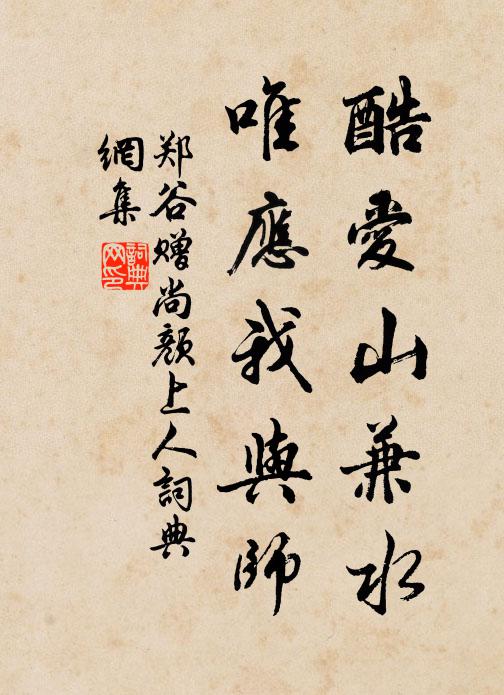 酷愛山兼水
唯應我與師
郑谷赠尚颜上人詞典
網集
詞典
网印